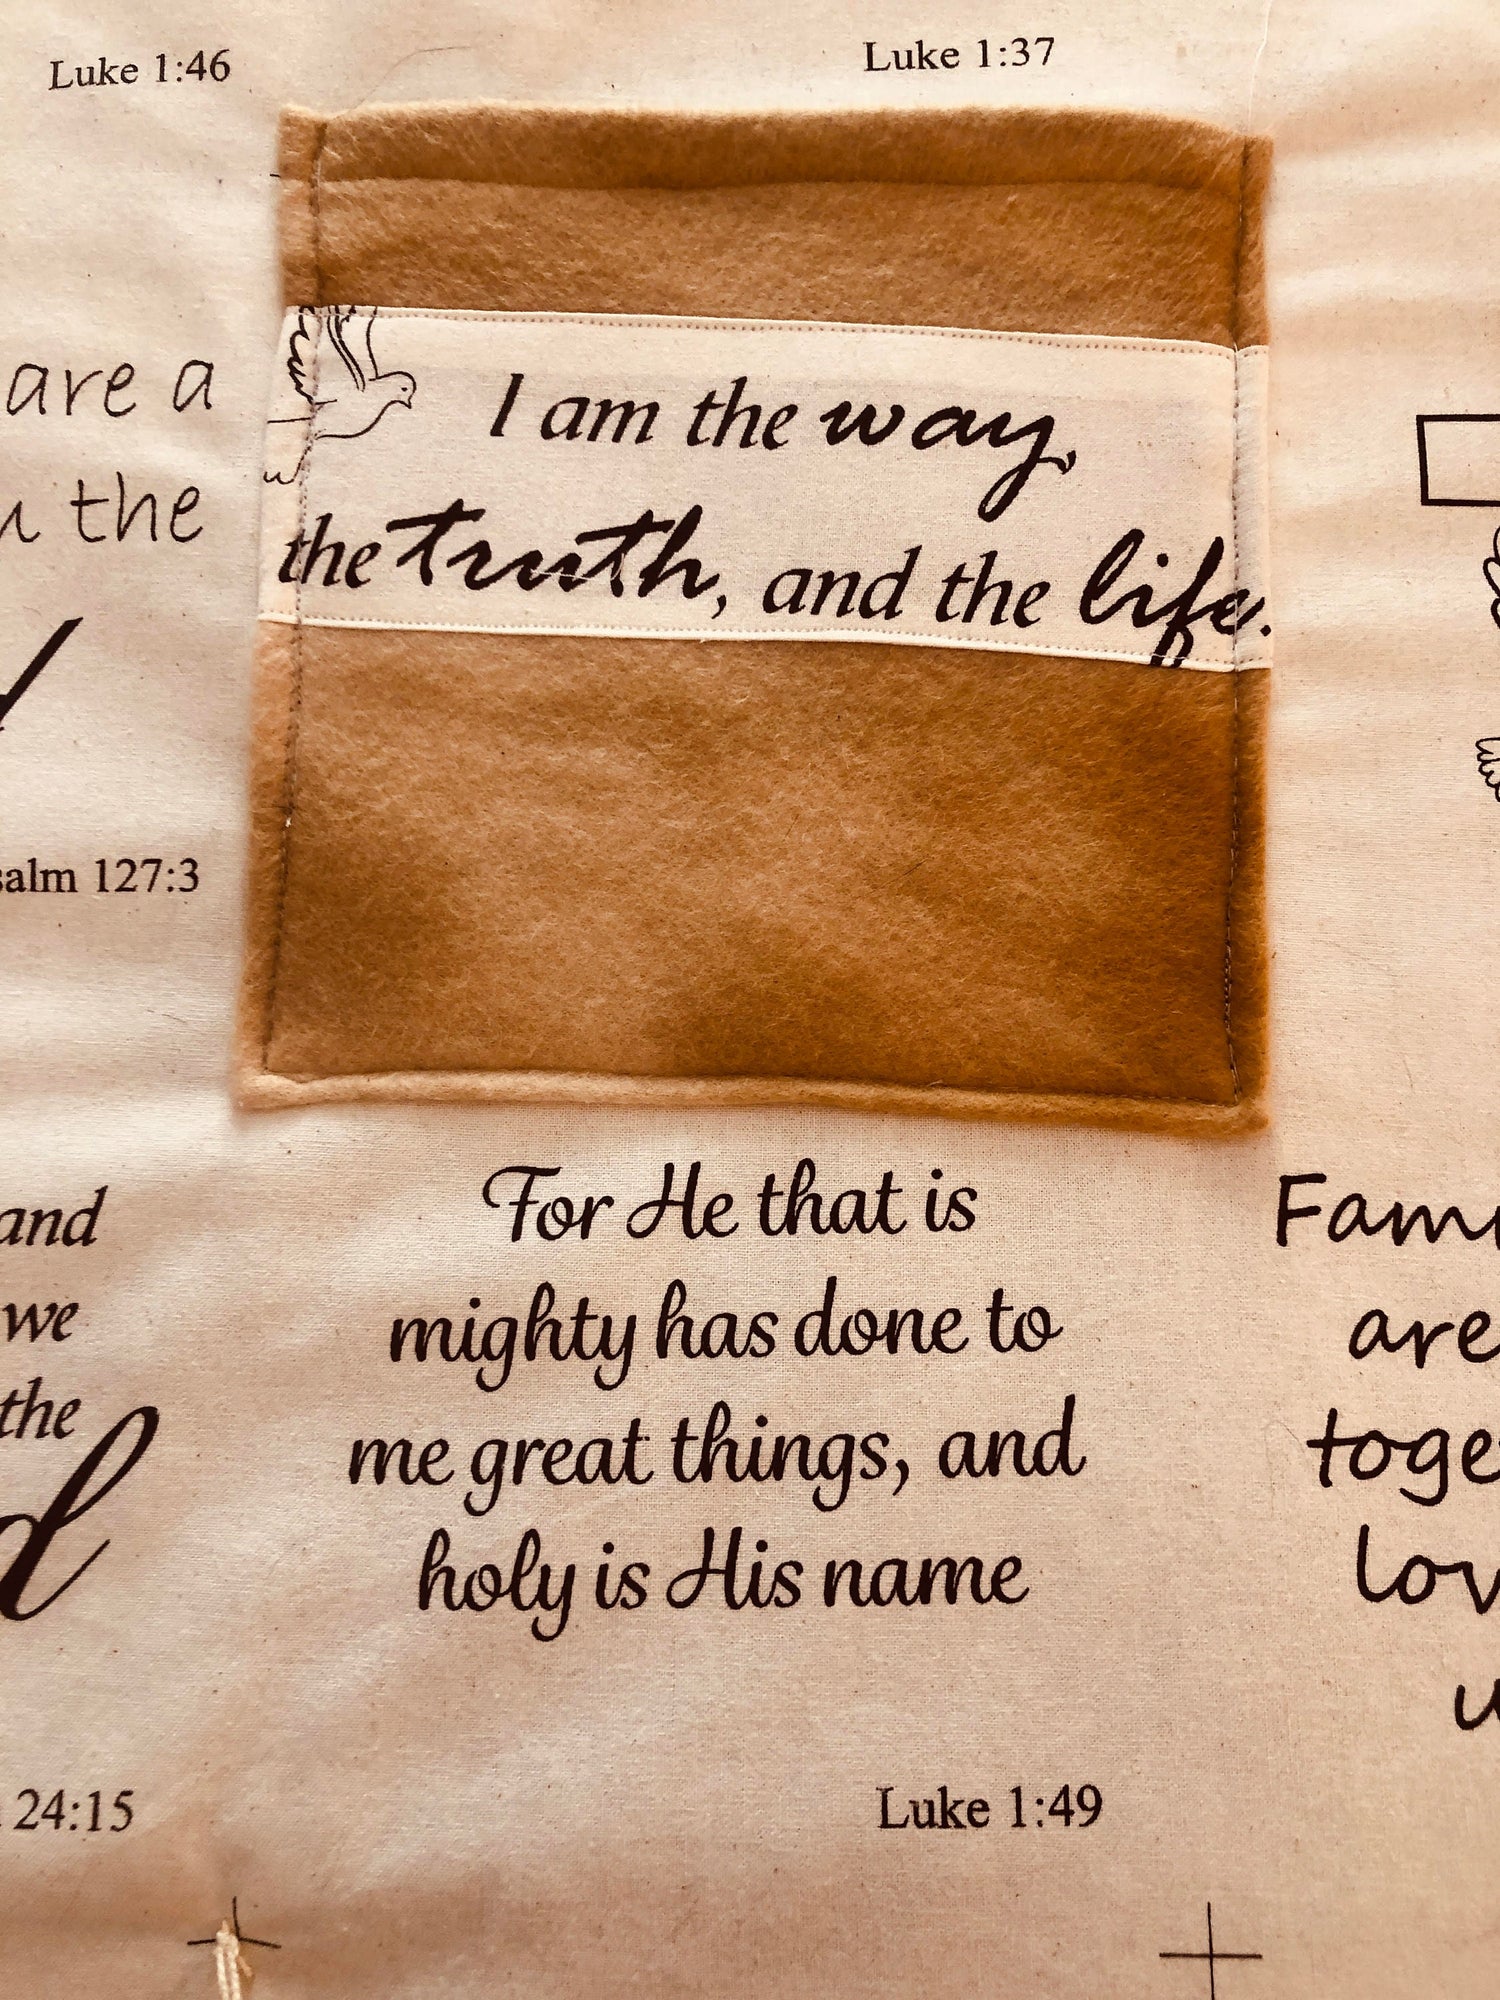 Luke 1:46
Luke 1:37
are a
the
I am the way,
the truth, and the life.
127:3
For He that is
mighty has done to
me great things, and
holy is His name
and
we
the
are
24:15
Luke 1:49